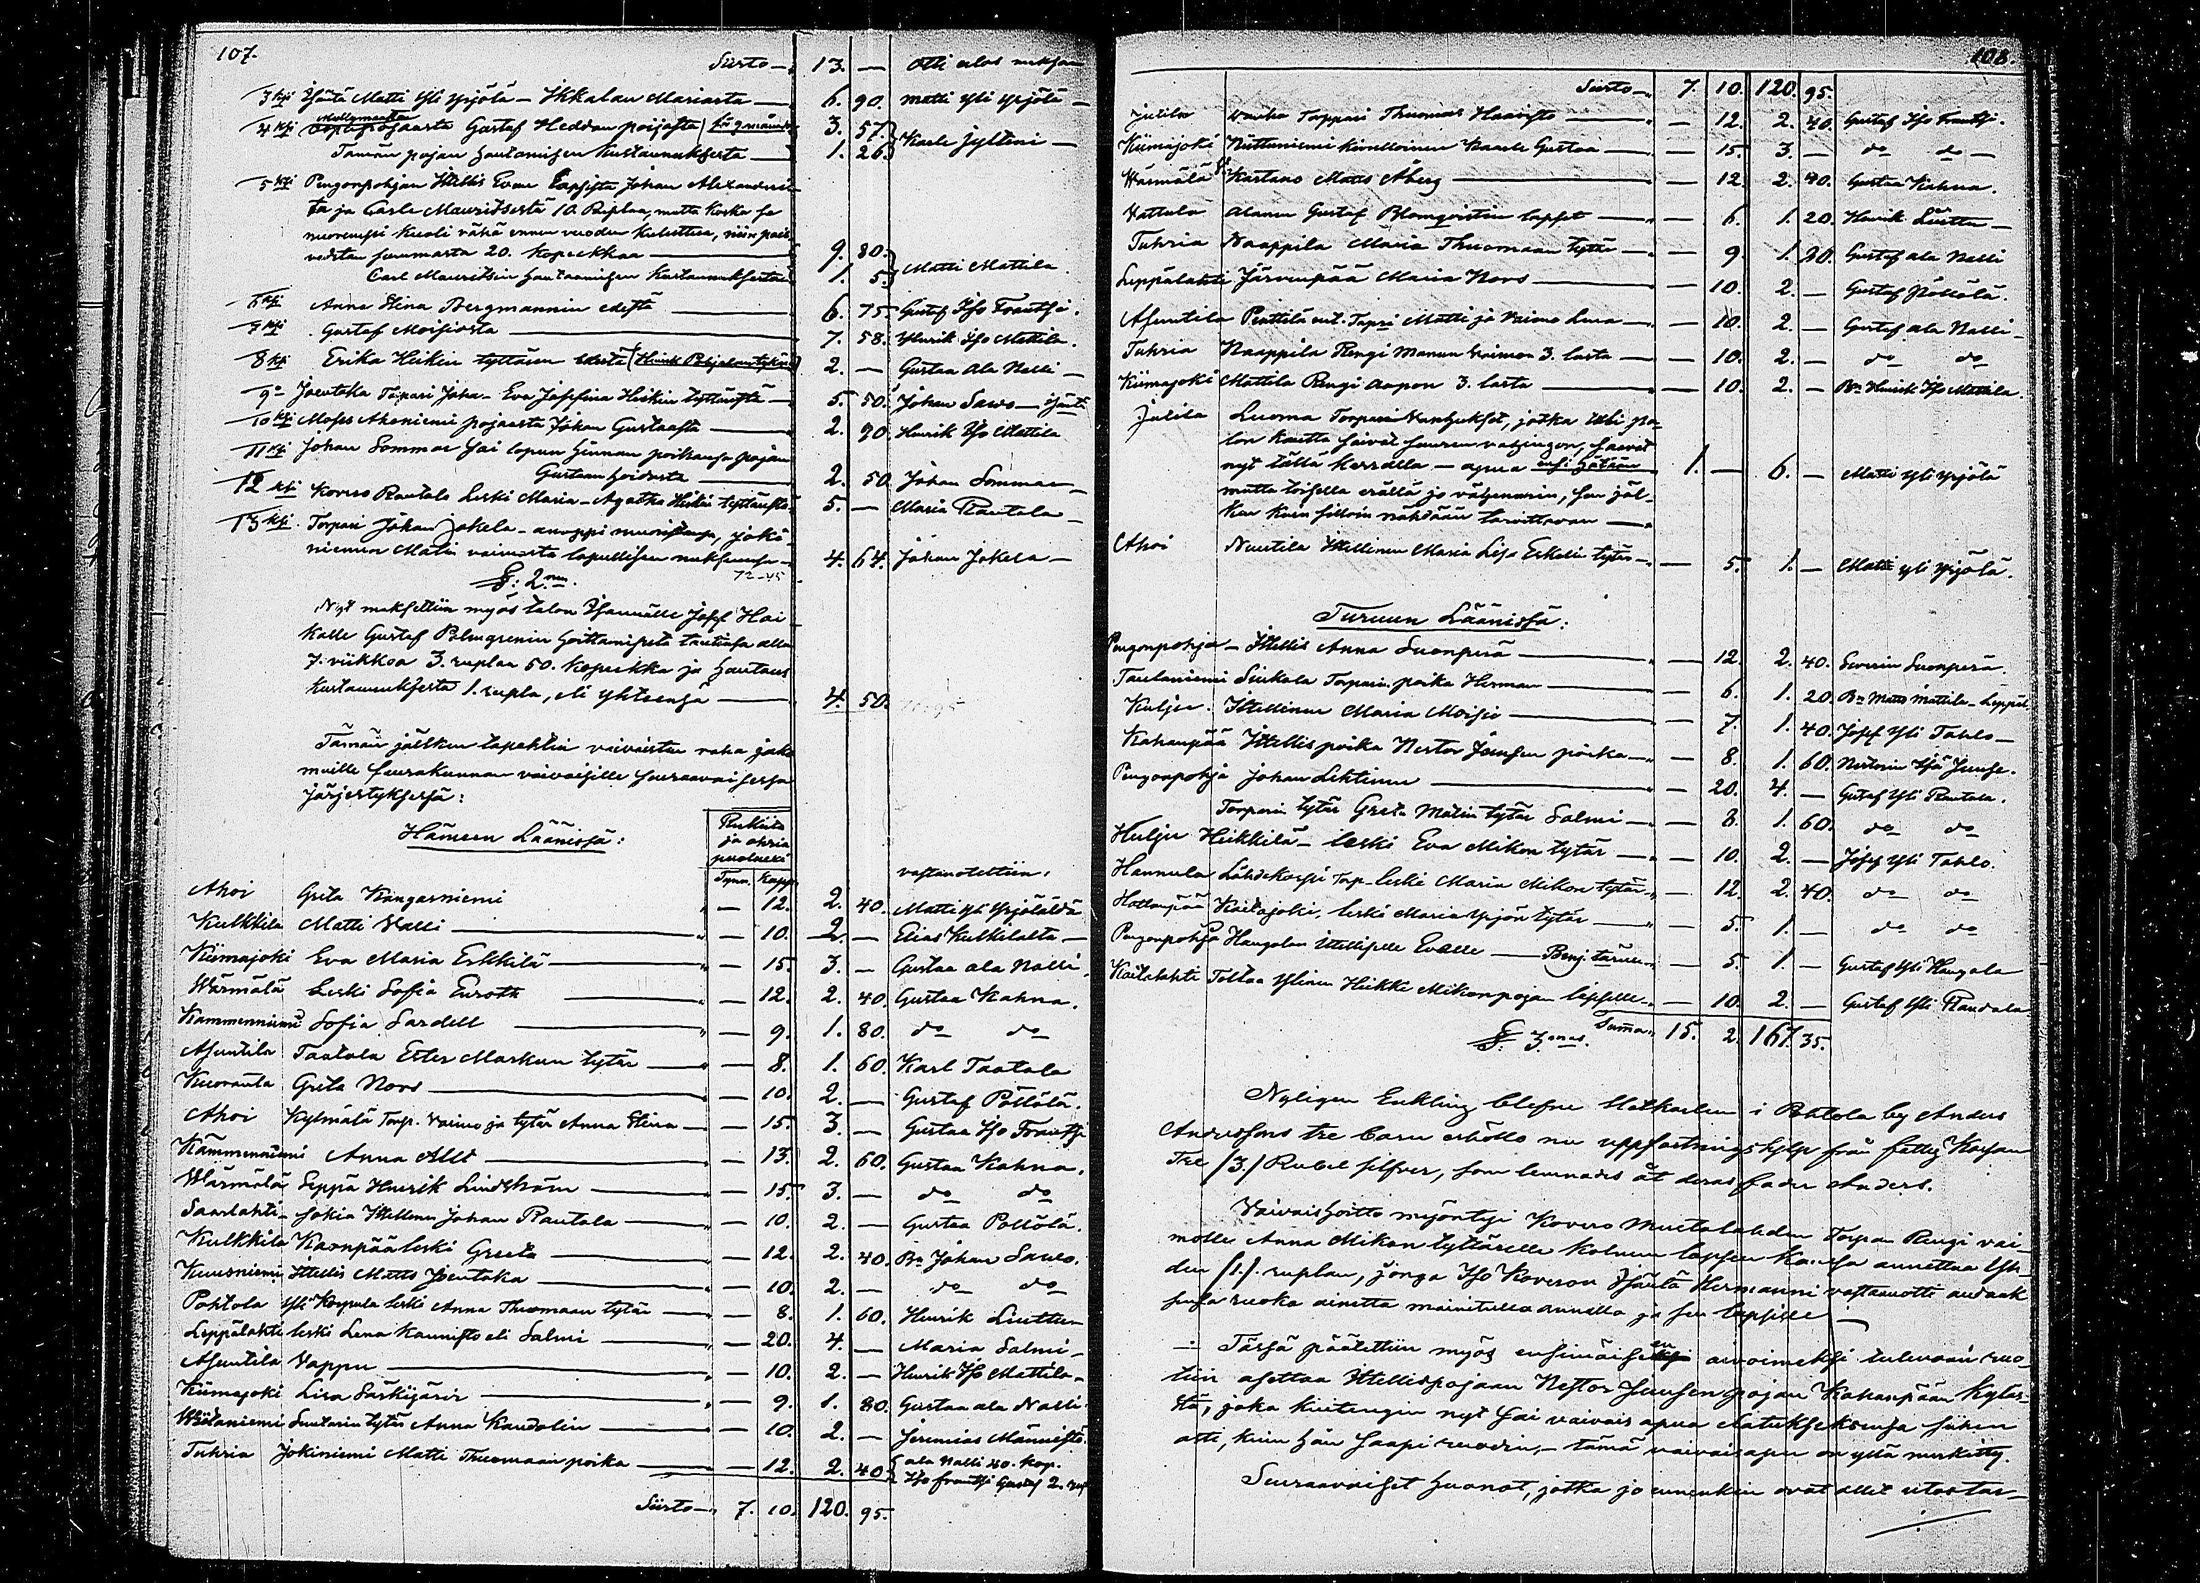 107.
Siirto — 13. — Otti ulos maksun
3 ksi Isäntä Matti Yli Yrjölä — Ikkalan Mariasta — 6. 90. Matti Yli Yrjölä —
4 ksi Gustaf Heddan pojasta 3. 57.
Tämän pojan hautamisen kustannuksesta — 1. 26. Kaele Jylleni —
5 ksi Pengonpohjan Ittellis Evan lapsista Johan Alexanderis-
ta ja Carle Mauritsesta 10. Ruplaa, mutta koska se
nuorempi kuoli vähä ennen vuoden kuluttua, niin pois
vedetän summasta 20. kopeekkaa — 9. 80.
Carl Mauritsin hautaamisen kustannuksesta 1. 5. Matti Mattila.
6 ksi Anna Stina Bergmannin edestä — 6. 75. Gustaf Iso Frantsi.
7 ksi Gustaf Moisiosta — 7. 58. Henrik Iso Mattila.
8 ksi Erika Heikin tyttären 2. — Gustaa Ala Nalli —
9 o Jseutaka Torpari Joha- Eva Josefina Heikin tyttärestä — 5. 50. Johan Sawo —
10 ksi Moses Akoniemi pojasta Johan Gustaasta — 2. 90. Henrik Iso Mattila
11 ksi Johan Sommar sai lopun hinnan poikansa pojan
Gustaan hoidosta — 2. 50. Johan Sommar —
12 ksi Kovero Rautala Leski Maria — Agatha Heikin tyttärestä 5. — Maria Rautala —
13 ksi Torpari Johan Jokela — anoppi muoristansa, joki-
niemen Matin vaimosta lopullisen maksunsa — 4. 64. Johan Jokela —
72-45
§: 2 nen.
Nyt maksettiin myös talon Isännälle Josef Hai
kalle Gustaf Palmgrenin hoittamisesta tautinsa alla
7. viikkoa 3. ruplaa 50. kopeekka ja hautaus
kustannuksesta 1. rupla, eli yhteensä — 4. 50.
Tämän jälkeen tapahtui vaivaisten raha jako
muille seurakunnan vaivaisille seuraavaisessa
järjestyksessä:
Hämeen Läänissä:
Rukiita
ja ohria
puoleksi
Tynn. Kapp. vastaanotettiin:
Ahoi Greta Kangasniemi — 12. 2. 40. Matti Yli Yrjölältä
Kulkkila Matti Valli — 10. 2. — Elias Kulkilalta —
Kiimajoki Eva Maria Erkkilä — 15. 3. — Gustaa ala Nalli.
Wärmälä Leski Sofia Euroth — 12. 2. 40. Gustaa Kahna.
Kämmenniemi Sofia Sardell — 9. 1. 80. do do
Asuntila Taatala Ester Markun tytär — 8. 1. 60. Karl Taatala
Kuoranta Greta Nors — 10. 2. — Gustaf Pöllölä.
Ahoi Kylmälä Torp. Vaimo ja tytär Anna Stina — 15. 3. — Gustaa Iso Frantsi
Kämmenniemi Anna Alld — 13. 2. 60. Gustaa Kahna.
Wärmälä Seppä Henrik Lindström — 15. 3. — do do
Saarlahti — Sokia Ittellinen Johan Rautala — 10. 2. — Gustaa Pöllölä.
Kulkkila Kaonpää leski Greeta — 12. 2. 40. Bn Johan Sawo.
Kuusniemi Ittellis Matts Jseutaka — 10. 2. — do do
Pohtola Yli Korpula leski Anna Thuomaan tytär — 8. 1. 60. Henrik Liuttu
Leppälahti leski Lena Kaunisto eli Salmi — 20. 4. — Maria Salmi —
Asuntila Vappu — 10. 2. — Henrik Iso Mattila —
Kiimajoki Lisa Särkijärvi — 9. 1. 80. Gustaa ala Nalli
Suutarin tytär Anna Kandolin — 10. 2. — Jeremias Männistö.
Tuhria Jokiniemi Matti Thuomaan poika — 12. 2. 40. ala Nalli 40. kop.
Iso frantsi Gustaf 2. rup
Siirto — 7. 10. 120. 95.
108.
Siirto — 7. 10. 120. 95.
Jutila vanha Torppari Thuomas Haavisto — 12. 2. 40. Gustaf Iso Frantsi.
Kiimajoki Kaarle Gustaa — 15. 3. — do do —
Wärmälä Kartano Matts Åberg — 12. 2. 40. Gustaa Kahna.
Vattula Alanen Gustaf Blomqvistin lapset — 6. 1. 20. Henrik Liuttu —
Tuhria Naappila Maria Thuomaan tytär — 9. 1. 80. Gustaf ala Nalli
Leppälahti Järvenpää Maria Nors — 10. 2. — Gustaf Pöllölä.
Asuntila Penttilä ent. Torpari Matti ja Vaimo Lena — 10. 2. — Gustaf ala Nalli —
Tuhria Naappila Rengi Manun vaimon 3. lasta — 10. 2. — do do
Kiimajoki Mattila Rengi Aapon 3. lasta — 10. 2. — Bn Henrik Iso Mattila.
Jutila Luoma Torpparin Vanhukset, jotka tuli pa-
lon kautta saivat suuren vahingon, saavat
nyt tällä kerralla — apua ensi hätään 1. — 6. — Matti Yli Yrjölä
mutta toisella erällä jo vähemmin, sen jäl-
keen kuin silloin nähdään tarvittavan —
Ahoi Nuutila Ittellinen Maria Lisa Erkin tytär — 5. 1. — Matti yli Yrjölä.
Turuun Läänissä:
Pengonpohja — Ittellis Anna Suonperä — 12. 2. 40. Severin Suonperä
Taulaniemi Siukola Torparin poika Herman — 6. 1. 20. Bn Matts Mattila — Leppäl.
Kuljee. Ittellinen Maria Moisio — 7. 1. 40. Josef Yli Tahlo —
Kahanpää Ittellis poika Nestor Junsen poika — 8. 1. 60. Nestorin Isä Junse.
Pengonpohja Johan Lehtinen — 20. 4. — Gustaf Yli Rautala.
Torparin tytär Greta Matin tytär Salmi — 8. 1. 60. do do
Kuljee Heikkilä — leski Eva Mikon tytär — 10. 2. — Josef Yli Tahlo.
Hannula Lähdekorpi Torp. leski Maria Mikon tytär — 12. 2. 40. do do
Kaitajoki, leski Maria Yrjön tytär — 5. 1. — do do
Pengonpohja Haugolan ittelliselle Evalle — Benj. tärelle — 5. 1. — Gustaf Yli Haugala
Kaitalahti Tottaa Ylinen Heikki Mikonpojan lapsille — 10. 2. — Gustaf Yli Raudala
Suma 15. 2. 167. 35.
§: 3 mas.
Nyligen Enkling blefne Statkarlen i Pohtola by Anders
Anderssons tre barn erhöllo nu uppfostringshjelp från fattig Kassan
Tre /3./ Rubel silfver, som lemnades åt deras fader Anders.
Vaivaishoitto myöntyi Kovero Mustalahden Torpan Rengi vai-
molle Anna Mikon tyttärelle kolmen lapsen kanssa annettaa Yh-
den /1./ ruplan, jonga Iso Koveron Isäntä Hermanni vastaanotti andaak
sensa ruoka ainetta mainitulle Annalle ja sen lapsille —
— Tässä päätettiin myös ensimäiseksi avoimeksi tulevaan ruo-
tiin asettaa Ittellispojaan Nestor Junsen pojan Kahanpään kyläs-
tä, joka kuitengin nyt sai vaivais apua elatukseksensa siihen
asti, kuin hän saapi ruodin, — tämä vaivaisapu on yllä merkitty.
Seuraavaiset huonot, jotka jo ennenkin ovat ollet utostar-